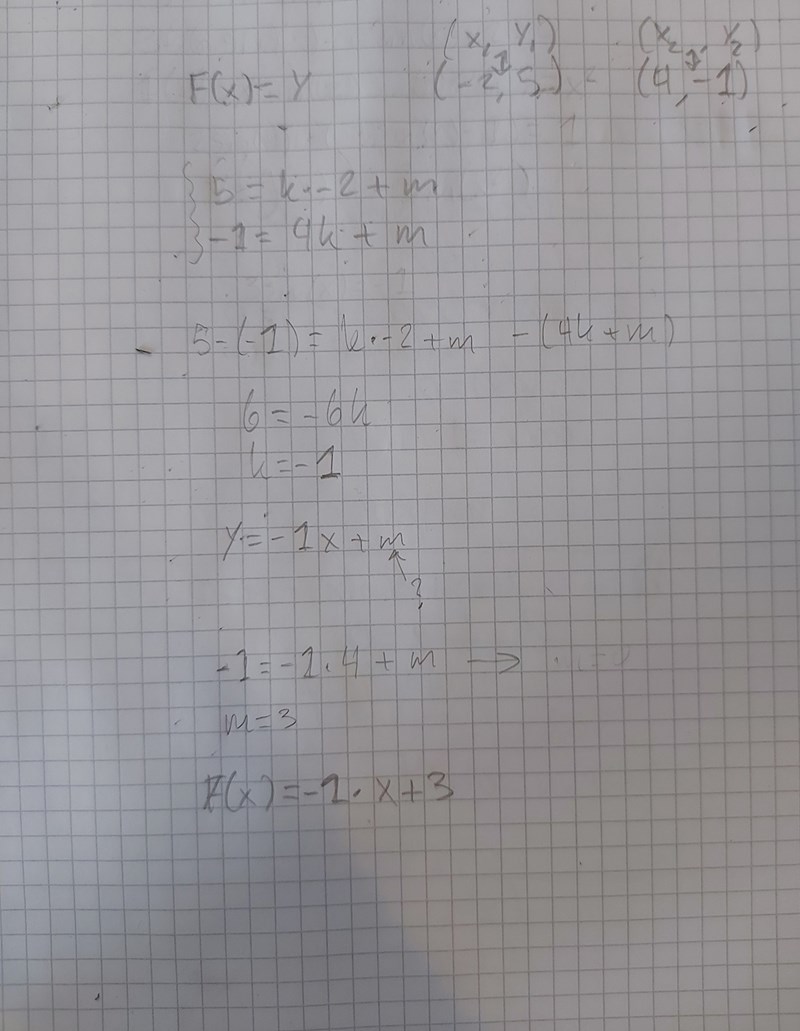 (x₁, y₁) (x₂, y₂)
F(x) = y (-2, 5) (4, -1)
5 = k·-2 + m
-1 = 4k + m
- 5-(-1) = k·-2+m -(4k+m)
6 = -6k
k = -1
y = -1x + m
?
-1 = -1·4 + m →
m = 3
F(x) = -1·x+3